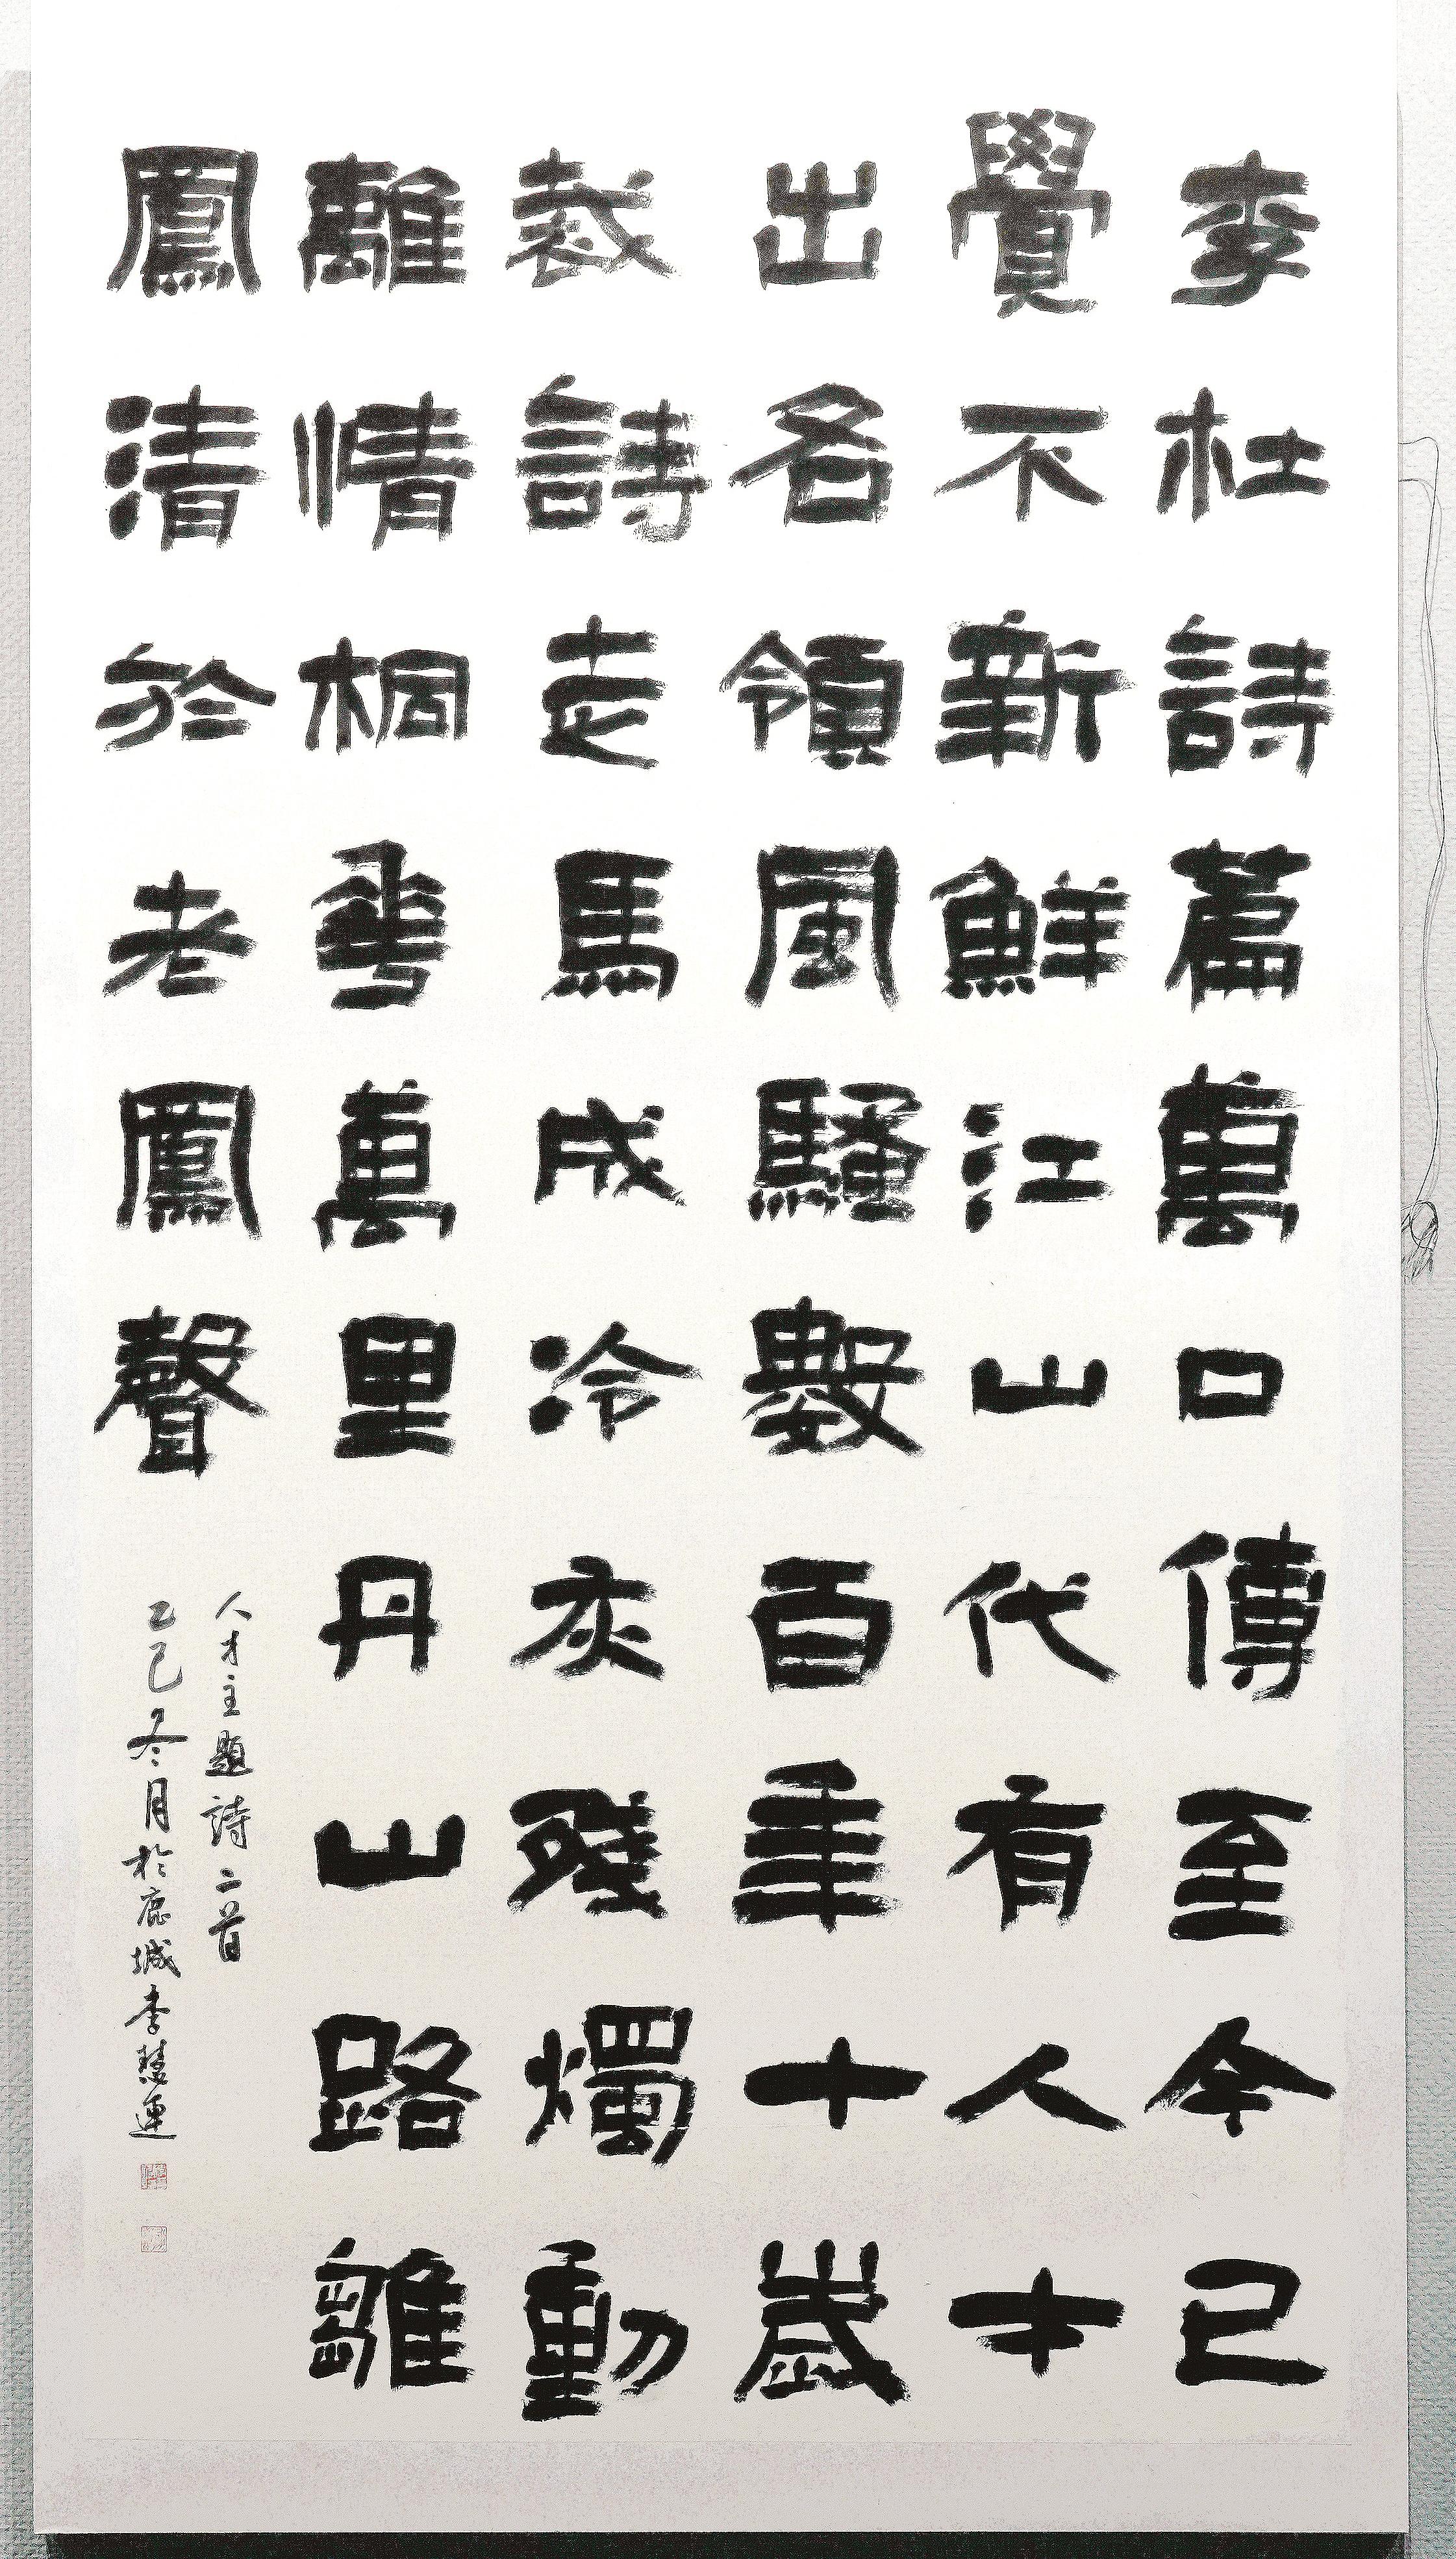 李杜詩篇萬口傳至今已
覺不新鮮江山代有人才
出各領風騷數百年十歲
裁詩走馬成冷灰殘燭動
離情桐華萬里丹山路雛
鳳清於老鳳聲
人才主題詩二首
乙巳冬月於鹿城李慧連